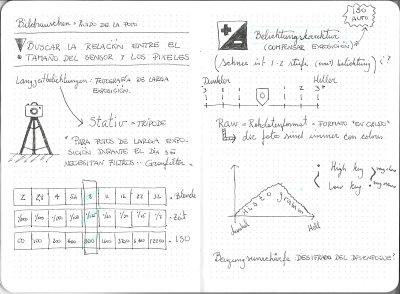 Bildrauschen = Ruido de la foto
Buscar la relación entre el
tamaño del sensor y los pixeles
Langzeitbelichtungen = fotografía de larga
exposición.
Stativ = trípode
* Para fotos de larga expo-
sición durante el día se
necesitan filtros -- Graufilter.
2 2,8 4 5,6 8 11 16 22 32 Blende
1/60 1/30 1/15 1/8 Zeit
50 100 200 400 800 1600 3200 6400 12800 ISO
ISO
AUTO
Belichtungskorrektur
(compensar exposición)
(Schnee ist 1-2 stufe (mas) belichtung)
Dunkler Heller
3 2 1 0 1 2 3
Raw = Rohdatenformat = formato "en crudo"
die fotos sind immer con colores
Histogramm
Dunkel Hell
* High key
Low key
Bewegungsunschärfe: desifrado del desenfoque?